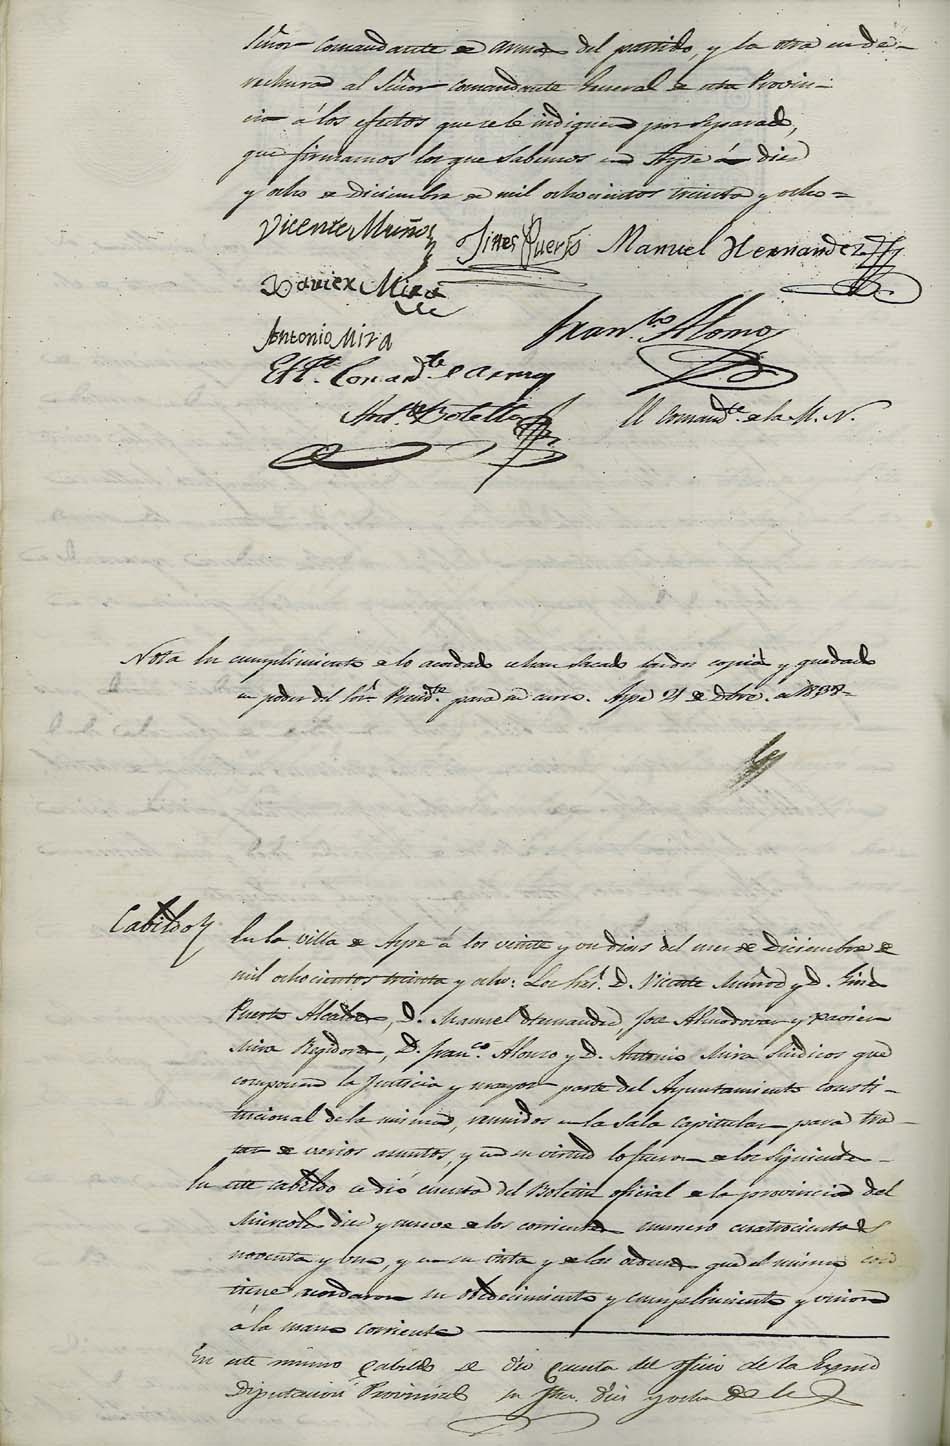 Señor Comandante de armas del partido, y la otra en de-
rechura al Señor Comandante General de esta Provin-
cia á los efectos que se le indiquen por separado,
que firmamos los que sabemos en Aspe á diez
y ocho de diciembre de mil ochocientos treinta y ocho=
Vicente Muñoz Gines Puerto Manuel Hernandez
Xavier Mira
Antonio Mira Fran.co Alonso
El Comand.te de Armas
Botella El Comand.te de la M. N.
Nota En cumplimiento de lo acordado se han sacado las dos copias y quedado
en poder del Sor. Presid.te para su curso. Aspe 21 de Dbre. de 1838=
Cabildo
En la villa de Aspe á los veinte y un dias del mes de Diciembre de
mil ochocientos treinta y ocho: Los Sres. D. Vicente Muñoz y D. Gines
Puerto Alcaldes, D. Manuel Hernandez, Jose Almodovar y Xavier
Mira Regidores, D. Fran.co Alonso y D. Antonio Mira Sindicos que
componen la Justicia y mayor parte del Ayuntamiento consti-
tucional de la misma, reunidos en la Sala Capitular para tra-
tar de varios asuntos, y en su virtud lo fueron de los siguientes-
En este cabildo se dió cuenta del Boletin oficial de la provincia del
Miercoles diez y nueve de los corrientes numero cuatrocientos
noventa y uno, y en su vista y de las ordenes que el mismo con
tiene acordaron su obedecimiento y cumplimiento y union
á la mano corriente
En este mismo Cabildo se dio cuenta del oficio de la Exma
Diputacion Provincial su fha. diez y ocho de